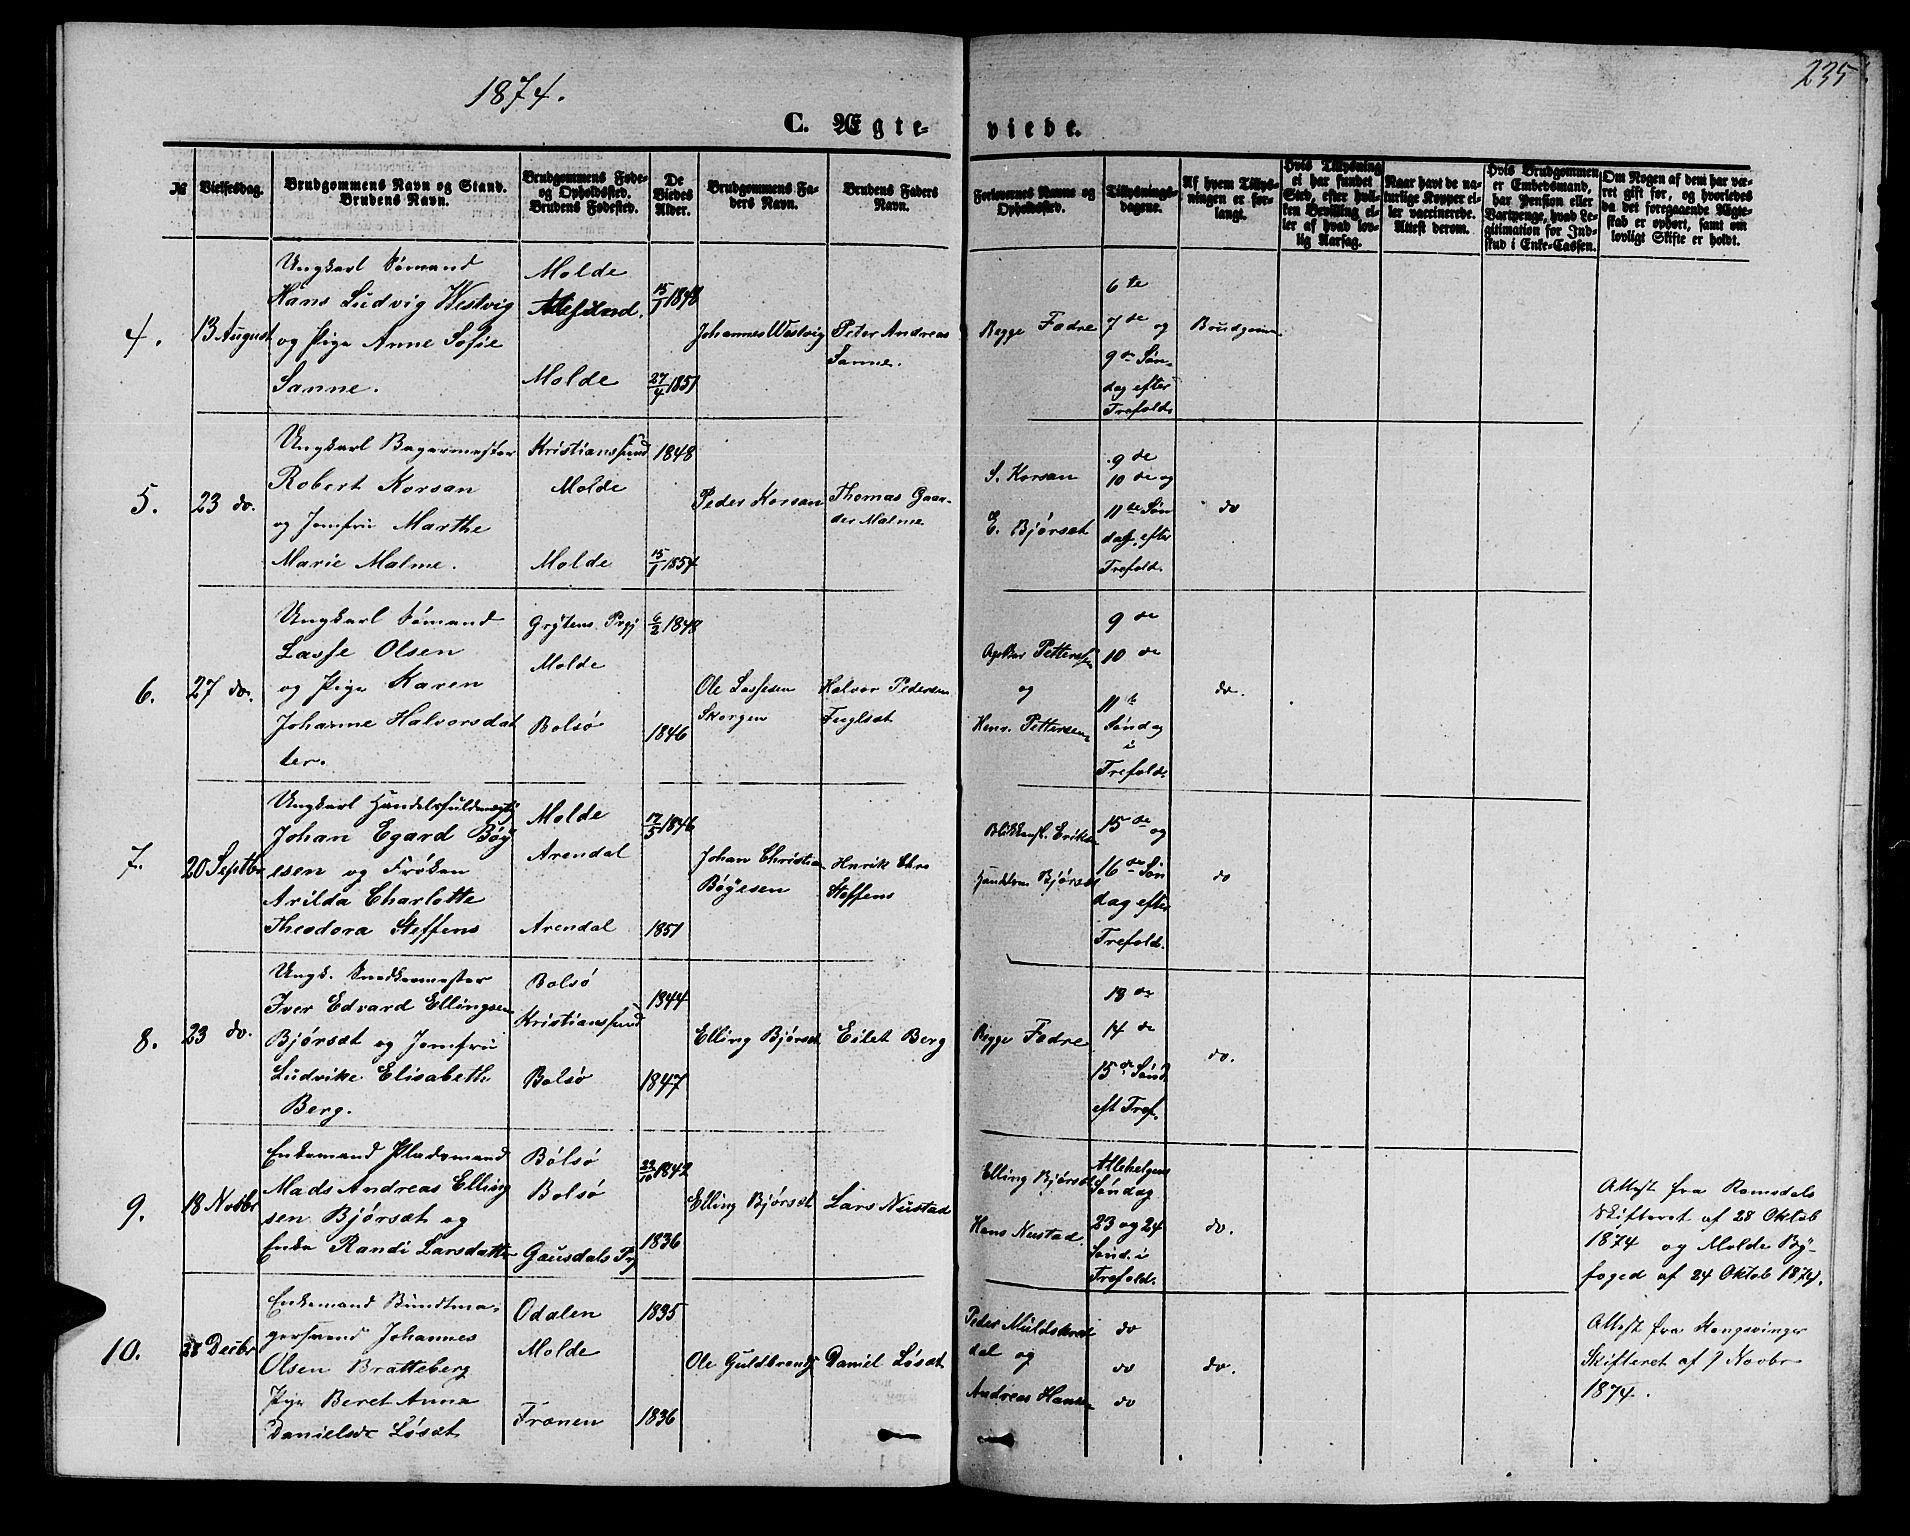 1874.
235
C. Ægte-
viede.
№
Vielsesdag.
Brudgommens Navn og Stand.
Brudens Navn.
Brudgommens Føde-
og Opholdssted.
Brudens Fødested.
De
Viedes
Alder.
Brudgommens Fa-
ders Navn.
Brudens Faders
Navn.
Forlovernes Navne og
Opholdssted.
Tillysnings-
dagene.
Af hvem Tillys-
ningen er for-
langt.
Hvis Tillysning
ei har fundet
Sted, efter hvil-
ken Bevilling el-
ler af hvad lov-
lig Aarsag.
Naar havt de na-
turlige Kopper el-
ler vaccinerede.
Attest derom.
Hvis Brudgommen
er Embedsmand,
har Pension eller
Vartpenge, hvad Le-
gitimation for Ind-
skud i Enke-Cassen.
Om Nogen af dem har væ-
ret gift før, og hvorledes
da det foregaaende Ægte-
skab er ophørt, samt om
lovligt Skifte er holdt.
4.
13 August
Ungkarl Sømand
Hans Ludvig Westvig
og Pige Anne Sofie
Sanne.
Molde
Alesund.
Molde
15/1 1848
27/4 1851
Johannes Westvig
Peter Andreas
Sanne.
Begge Fædre
6 te
7 de og
9 de Søn-
dag efter
Trefold.
Brudgom
5.
23 do.
Ungkarl Bagermester
Robert Korsan
og Jomfru Marthe
Marie Malme.
Kristianssund
Molde
Molde
1848
15/1 1854
Peder Korsan
Thomas Gaar-
der Malme
S. Korsan
E. Bjørset
9 de
10 de og
11 te Søn
dag efter
Trefold.
do
6.
27 do.
Ungkarl Sømand
Lasse Olsen
og Pige Karen
Johanne Halvorsdat
ter.
Grytens Prgj
Molde
Bolsø
6/2 1848
1846
Ole Lassesen
Skorgen
Halvor Pedersen
Fuglset
Pettersen
og
Henr. Pettersen
9 de
10 de
11 te
Søndag
i
Trefold.
do.
7.
20 Septbr
Ungkarl Handelsfuldmægtig
Johan Egard Bøy
esen og Frøken
Arilda Charlotte
Theodora Steffens
Molde
Arendal
Arendal
17/5 1846
1851
Johan Christian
Bøyesen
Henrik Chr.
Steffens
Blikkensl. Eriksen
Handelsm. Bjørset
15 de og
16 de Søn
dag efter
Trefold.
do
8.
23 do.
Ungk. Snedkermester
Iver Edvard Ellingsen
Bjørset og Jomfru
Ludvike Elisabeth
Berg.
Bolsø
Kristianssund
Bolsø
1844
1847
Elling Bjørset
Eilet Berg
Begge Fædre
13 de
14 de
15 de Sønd.
eft Tref.
do.
9.
18 Novbr
Enkemand Pladsmand
Mads Andreas Elling
sen Bjørset og
Enke Randi Larsdatter
Bolsø
Bolsø
Gausdals Pr
22/10 1842
1836
Elling Bjørset
Lars Nustad
Elling Bjørset
Hans Nustad.
Allehelgens
Søndag
23 og 24
Sønd. i
Trefold.
do.
Attest fra Romsdals
Skifteret af 28 Oktob
1874 og Molde By-
foged af 24 Oktob 1874.
10.
28 Decbr
Enkemand Bundtma-
gersvend Johannes
Olsen Bratteberg
Pige Beret Anna
Danielsdr Løset
Odalen
Molde
Frænen
1835
1836
Ole Guldbrands
Daniel Løset
Peder Muldskred
dal og
Andreas Hansen
do
do
do
do.
Attest fra Kongsvinger
Skifteret af 9 Novbr
1874.